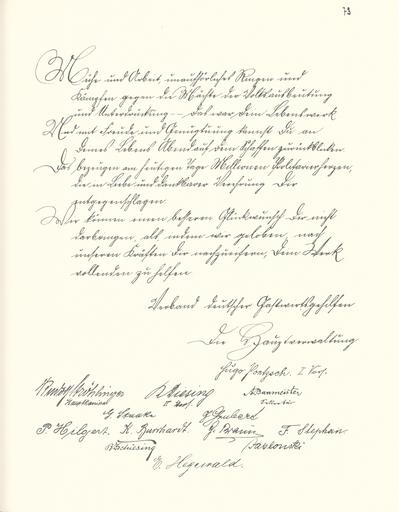 73
Mühe und Arbeit, unaufhörliches Ringen und
Kämpfen gegen die Mächte der Volksausbeutung
und Unterdrückung – das war Dein Lebenswerk
Und mit Freude und Genugtuung kannst Du an
Deines Lebens Abend auf dem Schaffen zurückblicken.
Das bezeugen am heutigen Tage Millionen Proletarierherzen,
die in Liebe und dankbarer Verehrung Dir
entgegenschlagen
Wir können einen besseren Glückwunsch Dir nicht
darbringen, als indem wir geloben, nach
unseren Kräften Dir nachzueifern, Dein Werk
vollenden zu helfen
Verband deutscher Gastwirtsgehilfen
Die Hauptverwaltung
Hugo Poetzsch. I. Vors.
Hauptkassierer II Vors. Sekretär
G. Staake
P. Hilgert. K. Burkhardt G. Braun F. Stephan.
Pawlowski
E. Hegewald.